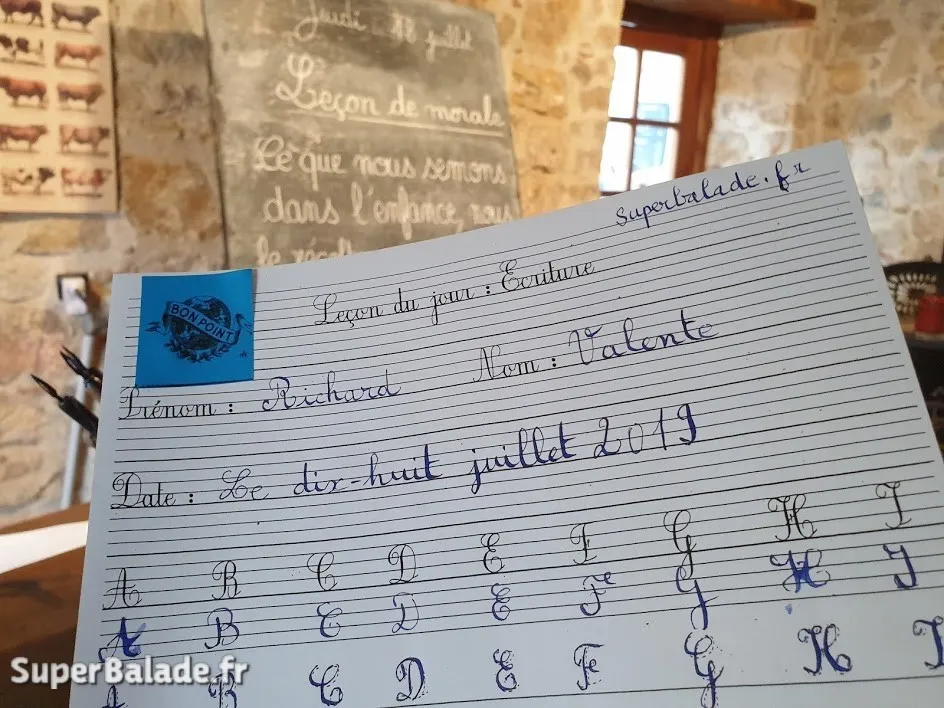 Jeudi 18 juillet
Leçon de morale
Ce que nous semons
dans l'enfance, nous
superbalade.fr
BON POINT
Leçon du jour : Ecriture
Prénom : Richard Nom : Valente
Date : Le dix-huit juillet 2019
A B C D E F G H I
A B C D E F G H I
A B C D E F G H I
SuperBalade.fr